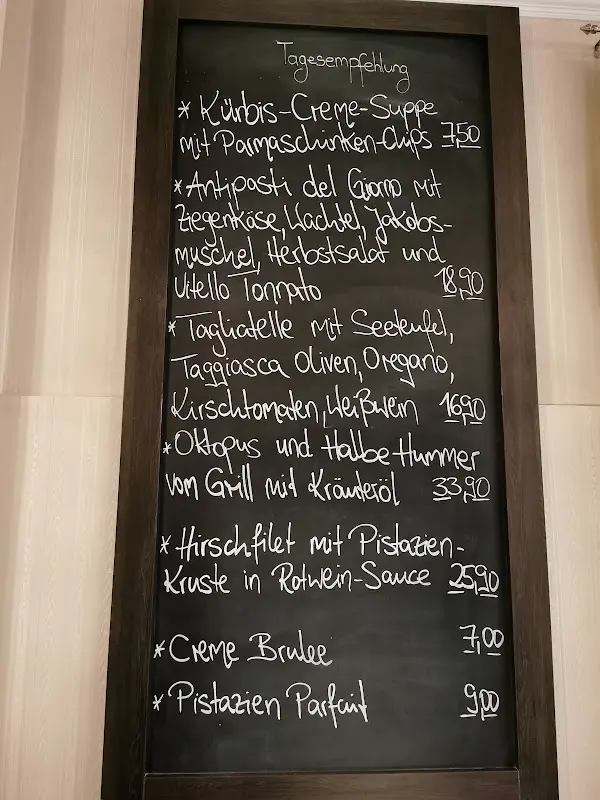 Tagesempfehlung
* Kürbis-Creme-Suppe
mit Parmaschinken-Chips 7,50
* Antipasti del Giorno mit
Ziegenkäse, Wachtel, Jakobs-
muschel, Herbstsalat und
Vitello Tonnato 18,90
* Tagliatelle mit Seeteufel,
Taggiasca Oliven, Oregano,
Kirschtomaten, Weißwein 16,90
* Oktopus und Halbe Hummer
vom Grill mit Kräuteröl 33,90
* Hirschfilet mit Pistazien-
Kruste in Rotwein-Sauce 25,90
* Creme Brulee 7,00
* Pistazien Parfait 9,00